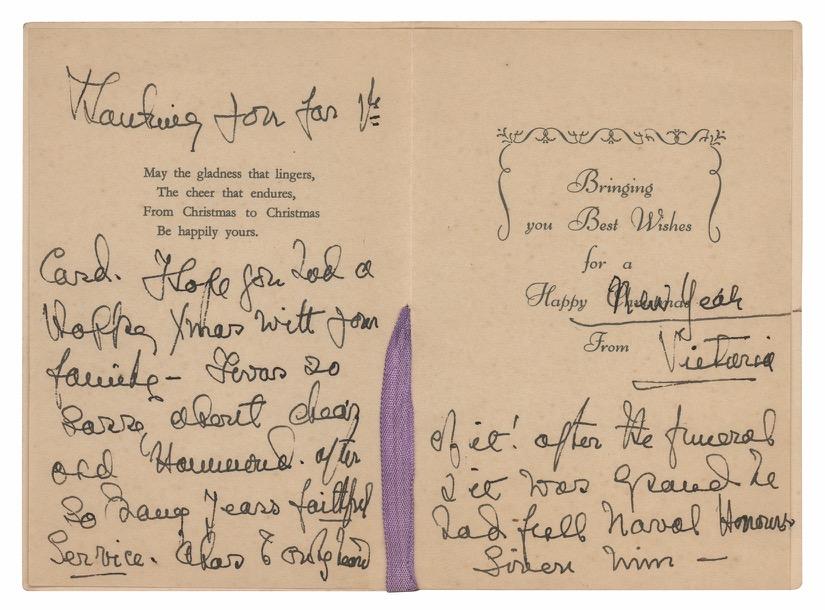 Thanking you for Ye
May the gladness that lingers,
The cheer that endures,
From Christmas to Christmas
Be happily yours.
Card. I Hope you had a
Happy Xmas with your
family – I was so
sorry about dear
old Hammond. after
So many years faithful
Service. Alas I only heard
Bringing
you Best Wishes
for a
Happy Christmas New Year
From Victoria
of it! after the funeral
it was grand he
had full Naval Honours
Given him –